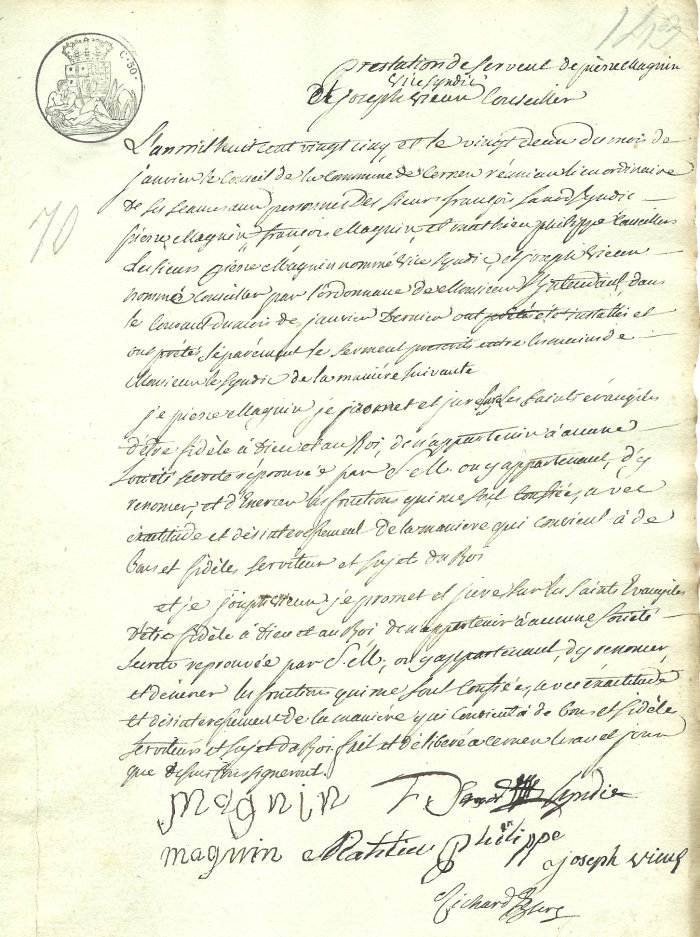 143
C. 80.
prestation de serment de pierre Magnin
vice syndic
et joseph vieux Conseiller
70
L'an mil huit cent vingt cinq et le vingt deux du mois de
janvier le Conseil de la Commune de Cernex réuni au lieu ordinaire
de ses seances aux personnes des sieurs françois syndic
pierre Magnin, françois Magnin, et mathieu philippe Conseillers
Les sieurs pierre Magnin nommé vice syndic, et joseph vieux
nommé Conseiller par l'ordonnance de Monsieur l'Intendant, dans
le Courant du mois de janvier Dernier ont prêté été installés et
ont prêté séparément le serment prescrit entre les mains de
Monsieur le syndic de la manière suivante
je pierre Magnin je promet et jure sur les saints évangiles
d'être fidèle à Dieu et au Roi, de n'appartenir à aucune
société secrete réprouvée par S. M. ou y appartenant, d'y
renoncer, et d'Exercer les fonctions qui me sont Confiées, avec
exatitude et désinteressement de la manière qui convient à de
bons et fidèles serviteur et sujet du Roi
et je joseph vieux je promet et jure sur les saints Evangiles
d'être fidèle à Dieu et au Roi de n'appartenir à aucune société
secrete reprouvée par S. M., ou y appartenant, d'y renoncer,
et d'éxercer les fonctions qui me sont Confiées, avec éxatitude
et désinteressement de la manière qui Convient à de bons et fidèle
serviteurs et sujet du Roi. fait et déliberé a cernex les an et jour
que dessus Et ont signé
Magnin F. syndic
magnin Mathieu philippe
joseph vieux
Richard